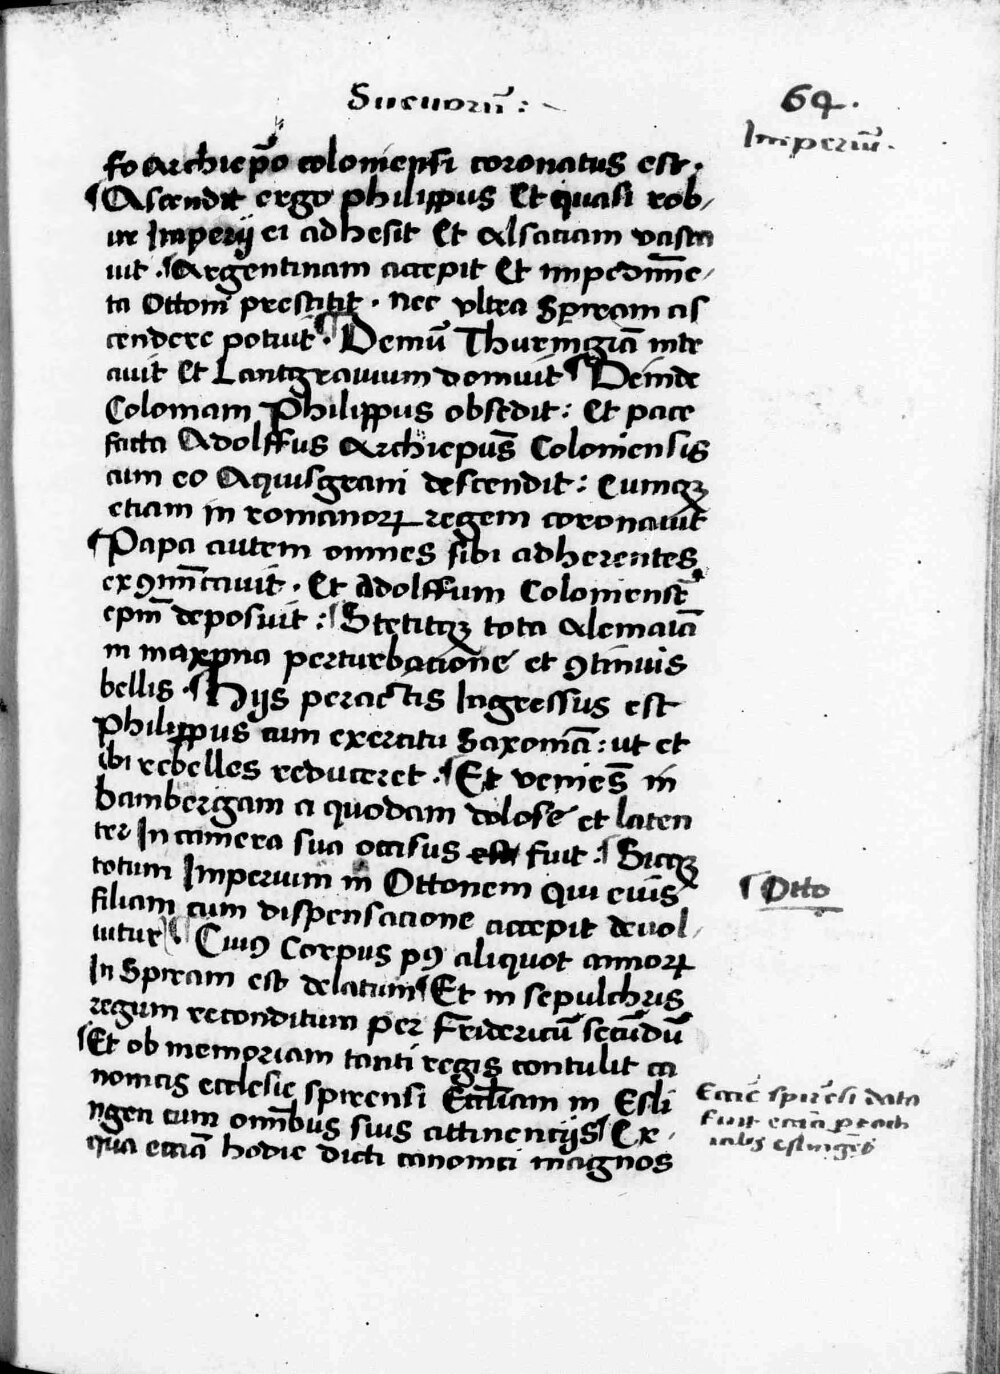 Sueuorū :
64.
Imperiū.
fo Archiep̄o coloniensi coronatus est.
¶ Ascendit ergo philippus Et quasi rob/
ur Imperij ei adhesit Et Alsaciam vasta
uit . ¶ Argentinam accepit Et impedim̄e/
ta Ottoni prestitit . nec vltra Spiream as
cendere potuit . ¶ Demū Thuringiā inte
auit Et Lantgrauium domuit ¶ Deinde
Coloniam Philippus obsedit : Et pace
facta Adolffus Archiepūs Coloniensis
cum eo Aquisgrani descendit : Cumqꝫ
etiam in romanoꝝ regem coronauit
¶ Papa autem omnes sibi adherentes
exꝯm̄cauit . Et Adolffum Coloniensē
ep̄m deposuit : ¶ Stetitqꝫ tota Alemaīa
in maxima perturbacione et ꝯtinuis
bellis . ¶ Hijs peractis Ingressus est
Philippus cum exercitu Saxoniā : ut et
ibi rebelles reduceret . ¶ Et venies̄ in
bambergam a quodam dolose et laten
ter In camera sua occisus est fuit . ¶ Sicqꝫ
totum Imperium in Ottonem qui eius̄
¶ Otto
filiam cum dispensacione accepit deuol/
uitur ¶ Cuiꝰ Corpus pꝰ aliquot annoꝝ
In Spiream est delatum ¶ Et in sepulchris
regum reconditum per Fridericū secūdū
¶ Et ob memoriam tanti regis contulit ca
nonicis ecclesie spirensi Eccl̄iam in Esli
Eccīe spirēsi data
ngen cum omībus suis attinencijs ¶ Ex/
fuit ecciā ꝑroch
qua eciā hodie dicti canonici magnos
ialis eslingēs̄